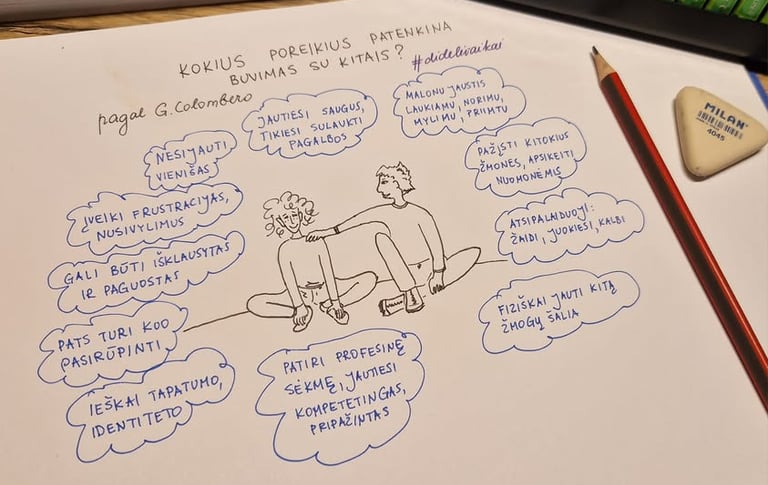 KOKIUS POREIKIUS PATENKINA
BUVIMAS SU KITAIS?
#didelivaikai
pagal G. Colombero
JAUTIESI SAUGUS,
TIKIESI SULAUKTI
PAGALBOS
MALONU JAUSTIS
LAUKIAMU, NORIMU,
MYLIMU, PRIIMTU
NESIJAUTI
VIENIŠAS
PAŽĮSTI KITOKIUS
ŽMONES, APSIKEITI
NUOMONĖMIS
ĮVEIKI FRUSTRACIJAS,
NUSIVYLIMUS
ATSIPALAIDUOJI:
ŽAIDI, JUOKIESI, KALBI
GALI BŪTI IŠKLAUSYTAS
IR PAGUOSTAS
FIZIŠKAI JAUTI KITĄ
ŽMOGŲ ŠALIA
PATS TURI KUO
PASIRŪPINTI
IEŠKAI TAPATUMO,
IDENTITETO
PATIRI PROFESINĘ
SĖKMĘ, JAUTIESI
KOMPETETINGAS,
PRIPAŽINTAS
MILAN
4045